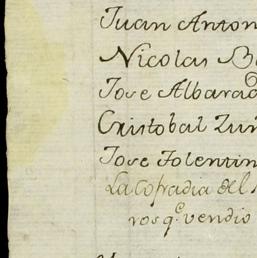 Juan Anton
Nicolas B
Jose Albarad
Cristobal Zuñ
Jose Tolentin
La Cofradia del
ros q.e vendio